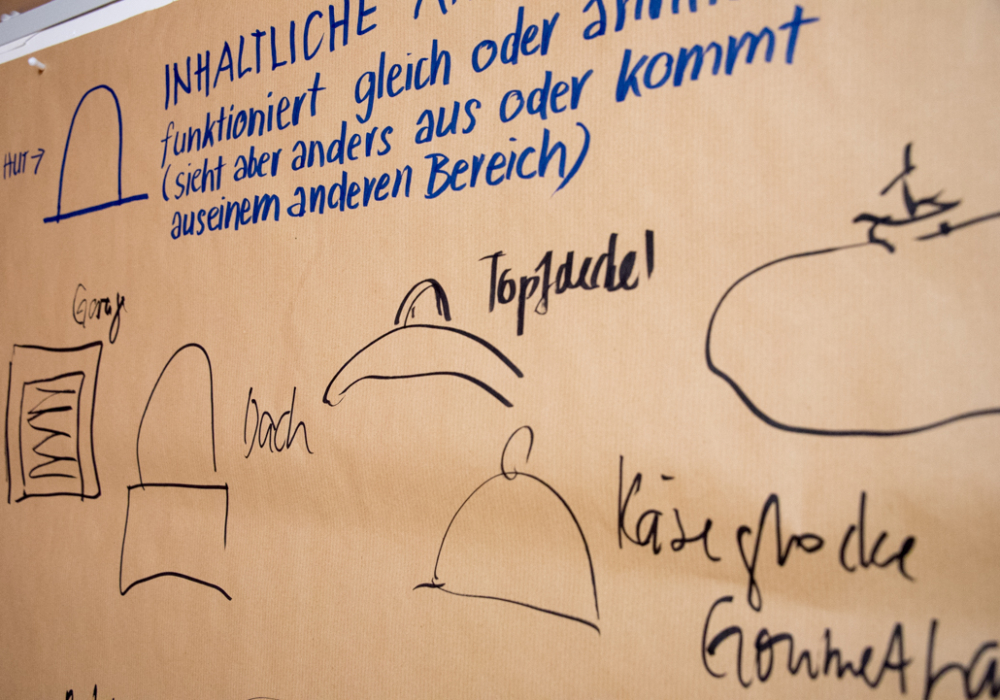 INHALTLICHE
funktioniert gleich oder
(sieht aber anders aus oder kommt
aus einem anderen Bereich)
HUT→
Topfdeckel
Dach
Käseglocke